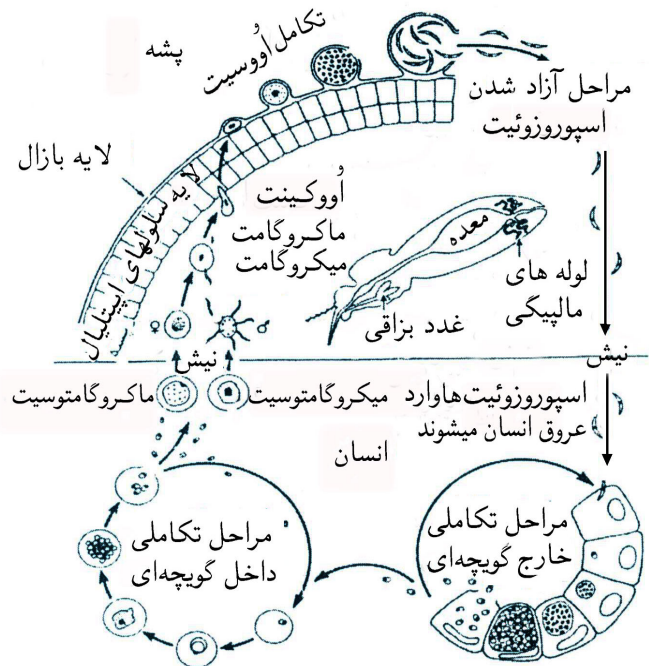 پشه
تکامل اُووسیت
مراحل آزاد شدن
اسپوروزوئیت
لایه بازال
لایه سلولهای اپیتلیال
اُووکینت
ماکروگامت
میکروگامت
معده
لوله های
مالپیگی
غدد بزاقی
نیش
نیش
ماکروگامتوسیت
میکروگامتوسیت
اسپوروزوئیت‌ها وارد
عروق انسان میشوند
انسان
مراحل تکاملی
داخل گویچه‌ای
مراحل تکاملی
خارج گویچه‌ای